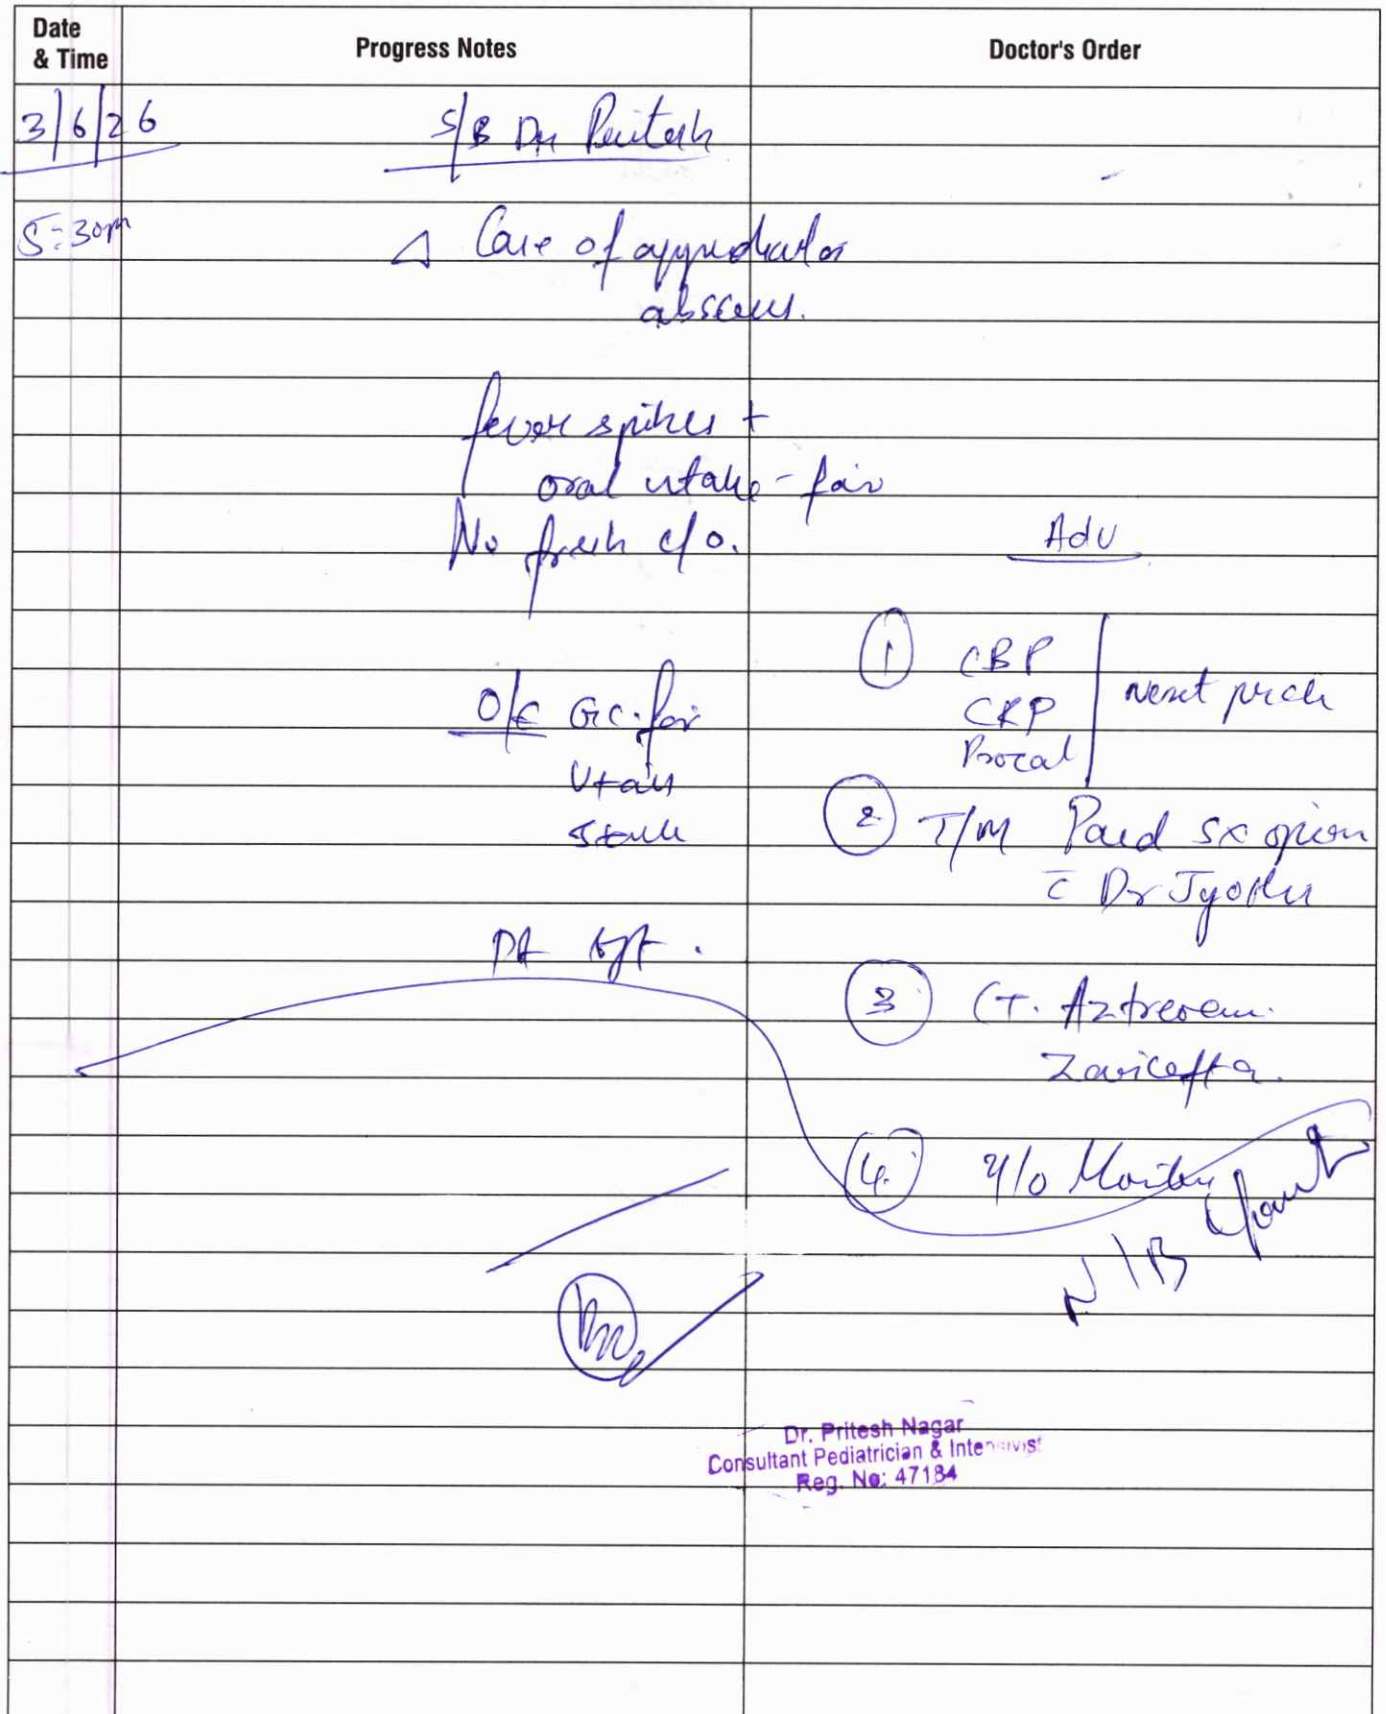 Date & Time
Progress Notes
Doctor's Order
3/6/26
S/B Dr Pritesh
5:30pm
Δ Case of appendicular
abscess.
fever spikes +
oral intake - fair
No fresh c/o.
Adv
O/E GC. fair
Vitals
Stable
① CBP
CRP
Procal
next prick
② T/M Paed Sx opinion
c̄ Dr Jyothi
PA soft.
③ CT. Aztreonam.
Zavicefta.
④ I/O Monitor
N/B
Dr. Pritesh Nagar
Consultant Pediatrician & Intensivist
Reg. No: 47184